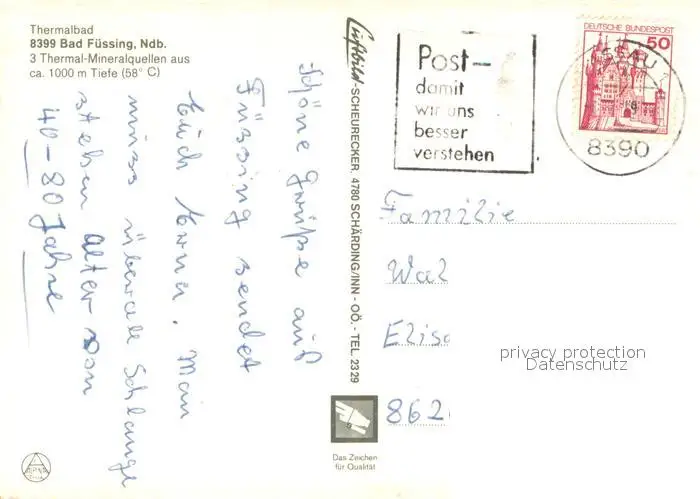 Thermalbad
8399 Bad Füssing, Ndb.
3 Thermal-Mineralquellen aus
ca. 1000 m Tiefe (58° C)
Schöne Grüße aus
Füssing sendet
Euch Erna. Man
muss überall Schlange
stehen Alter von
40-80 Jahre
Luftbild-SCHEURECKER, 4780 SCHÄRDING/INN - OÖ. - TEL. 2329
Das Zeichen
für Qualität
Post-
damit
wir uns
besser
verstehen
DEUTSCHE BUNDESPOST
50
8390
Familie
Wal
Elisa
862
privacy protection
Datenschutz